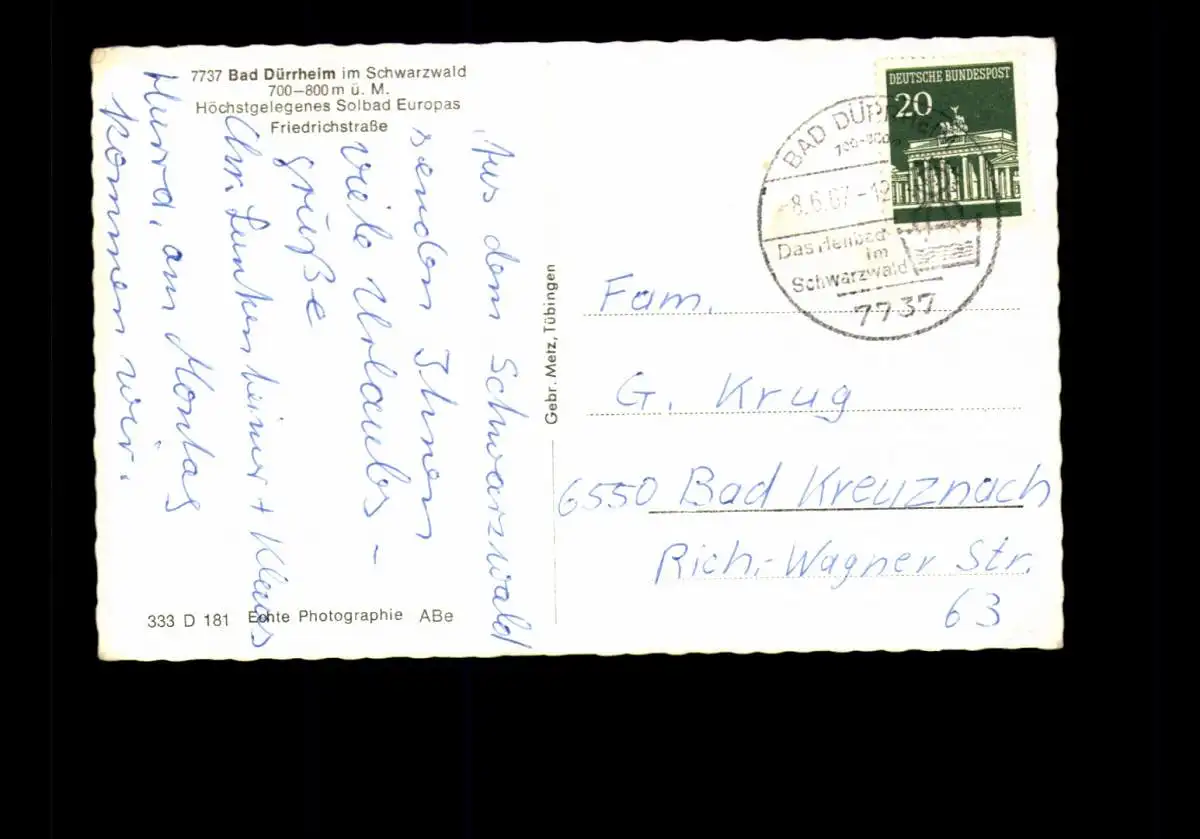 7737 Bad Dürrheim im Schwarzwald
700–800 m ü. M.
Höchstgelegenes Solbad Europas
Friedrichstraße
Aus dem Schwarzwald
senden Ihnen
viele Urlaubs-
grüße
Chr. + Klaus
Hurra, am Montag
kommen wir.
333 D 181 Echte Photographie ABe
Gebr. Metz, Tübingen
DEUTSCHE BUNDESPOST
20
BAD DÜRRHEIM
-8.6.67-12
Das Heilbad
im
Schwarzwald
7737
Fam.
G. Krug
6550 Bad Kreuznach
Rich.-Wagner Str.
63